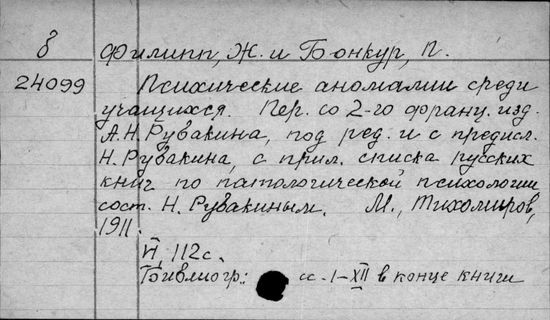 8 Филипп, Ж. и Бонкур, П.
24099 Психические аномалии среди
учащихся. Пер. со 2-го франц. изд.
А.Н. Рубакина, под ред. и с предисл.
Н. Рубакина, с прил. списка русских
книг по патологической психологии
сост. Н. Рубакиным. М., Тихомиров,
1911.
VI, 112 с.
Библиогр.: сс. I-XII в конце книги